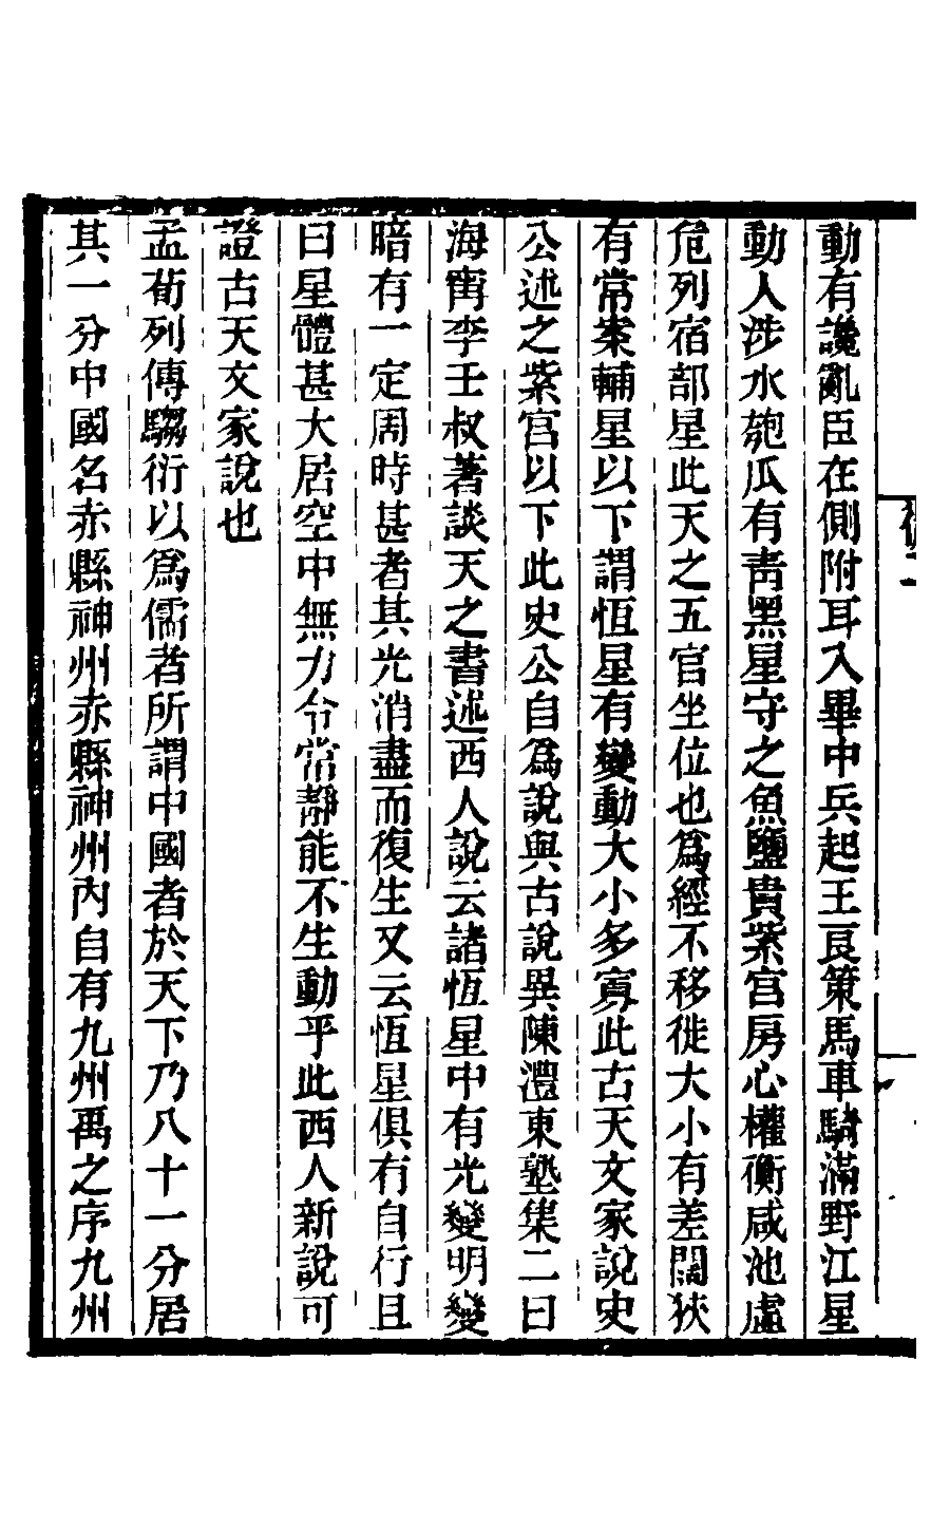 動有讒亂臣在側附耳入畢中兵起王良策馬車騎滿野江星
動人涉水匏瓜有靑黑星守之魚鹽貴紫宮房心權衡咸池虛
危列宿部星此天之五官坐位也爲經不移徙大小有差闊狹
有常案輔星以下謂恆星有變動大小多寡此古天文家說史
公述之紫宮以下此史公自爲說與古說異陳澧東塾集二曰
海甯李壬叔著談天之書述西人說云諸恆星中有光變明變
暗有一定周時甚者其光消盡而復生又云恆星俱有自行且
曰星體甚大居空中無力令常靜能不生動乎此西人新說可
證古天文家說也
孟荀列傳騶衍以爲儒者所謂中國者於天下乃八十一分居
其一分中國名赤縣神州赤縣神州內自有九州禹之序九州